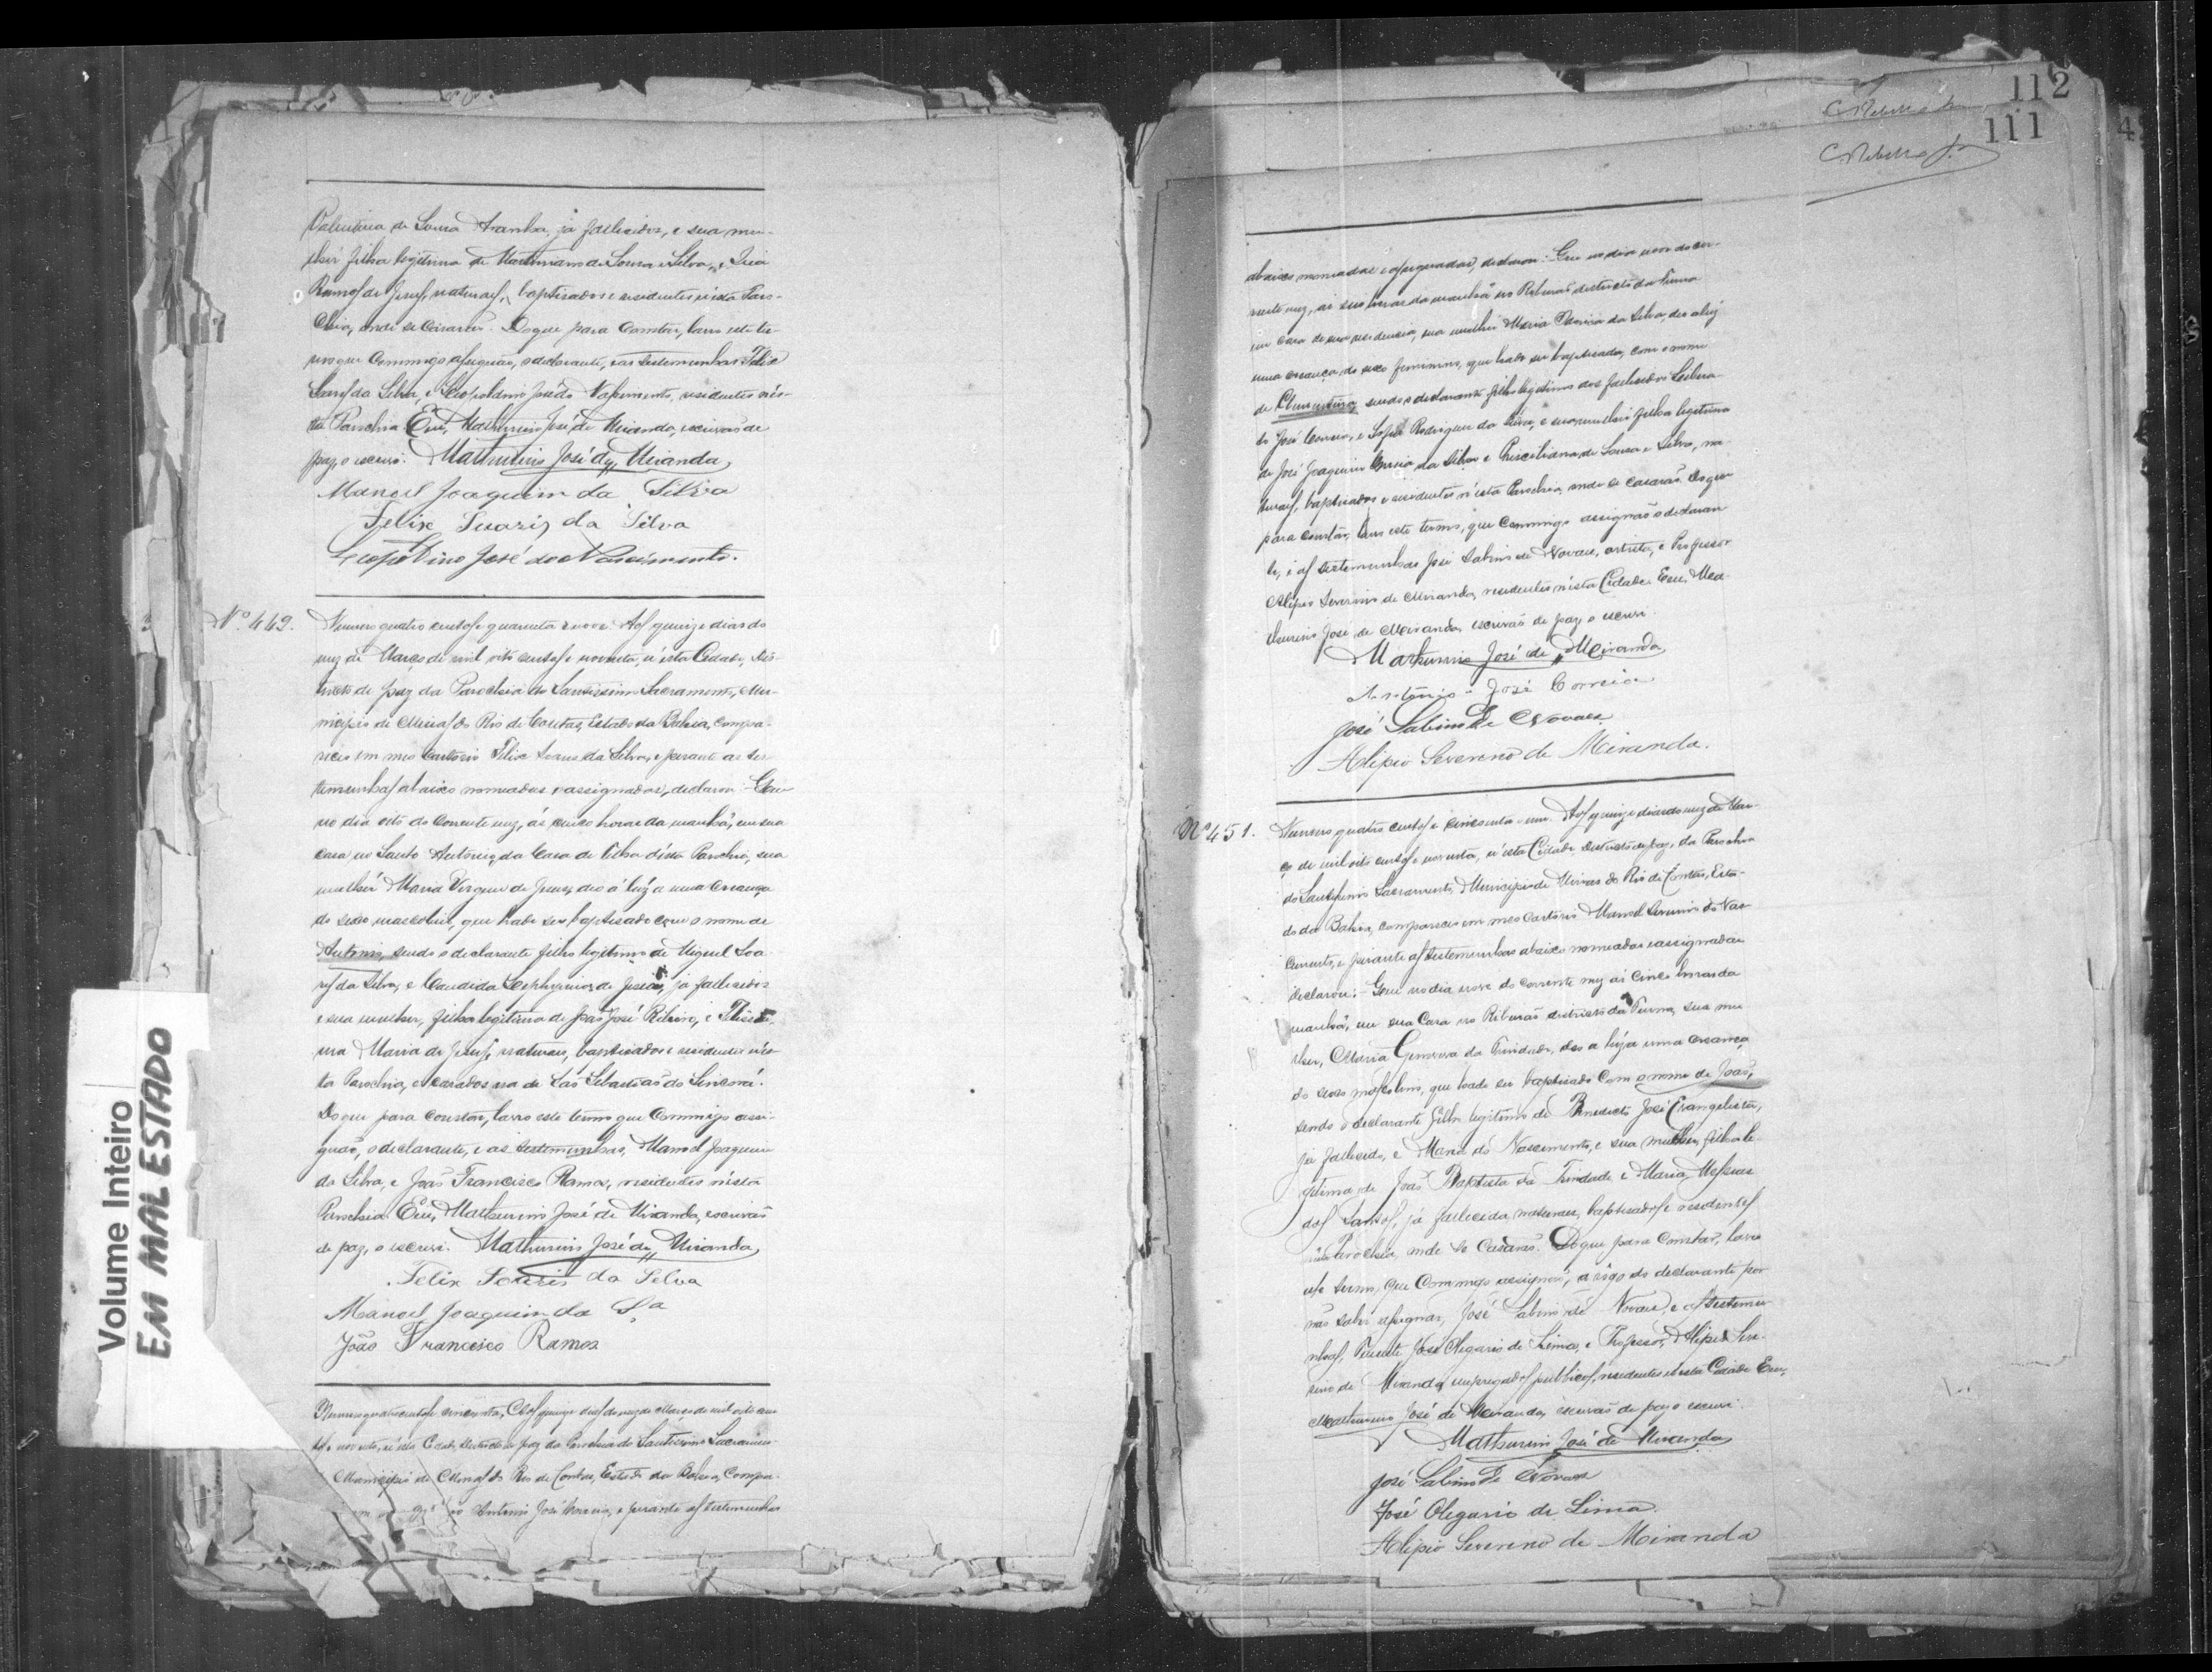 Valentina de Sousa Aranha, já fallecidos, e sua mu-
lher filha legitima de Mathurinam de Sousa e Silva, e
Ramos de Jesus, naturaes, baptisados e residentes n'esta Paro-
chia, onde se Casarão. Do que para Constar, lavro este ter-
mo que Commigo assignão, o declarante, e as testemunhas Felix
Soares da Silva, e Leopoldino José do Nascimento, residentes n'es-
ta Parochia. Eu, Mathurino José de Miranda, escrivão de
paz, o escrevi. Mathurino José de Miranda
Manoel Joaquim da Silva
Felix Suariz da Silva
Leopoldino José do Nascimento.
Nº 449.
Numero quatro centos e quarenta e nove. Aos quinze dias do
mez de Março de mil oito centos e noventa, n'esta Cidade, dis-
tricto de paz da Parochia do Santissimo Sacramento, Mu-
nicipio de Minas do Rio de Contas, Estado da Bahia, compa-
receo em meo Cartorio Felix Soares da Silva, e perante as tes-
temunhas abaixo nomeadas e assignadas, declarou: Que
no dia oito do Corrente mez, ás cinco horas da manhã, em sua
casa, no Santo Antonio, da Casa de Telha d'esta Parochia, sua
mulhér Maria Virgem de Jesus, deo á luz a uma Criança
do sexo masculino, que hade ser baptisado com o nome de
Antonio, sendo o declarante filho legitimo de Miguel Soa-
res da Silva, e Candida Zephyrina de Jesus, já fallecidos
e sua mulher, filha legitima de João José Ribeiro, e
Maria de Jesus, naturaes, baptisados e residentes n'es-
ta Parochia, e casados na de São Sebastião do Sincorá.
Do que para Constar, lavro este termo que Commigo assi-
gnão, o declarante, e as testemunhas, Manoel Joaquim
da Silva, e João Francisco Ramos, residentes n'esta
Parochia. Eu, Mathurino José de Miranda, escrivão
de paz, o escrevi. Mathurino José de Miranda
Felix Soariz da Silva
Manoel Joaquim da Sª
João Francisco Ramos
Numero quatrocentos e cincoenta. Aos quinze dias do mez de Março de mil oito cen-
tos e noventa, n'esta Cidade, districto de paz da Parochia do Santissimo Sacramen-
Municipio de Minas do Rio de Contas, Estado da Bahia, Compa-
Antonio José Correia, e perante as testemunhas
Volume Inteiro
EM MAL ESTADO
112
111
4
abaixo nomeadas e assignadas, declarou: Que no dia nove do cor-
rente mez, ás seis horas da manhã no Riberão districto da Furna
em casa de sua residencia, sua mulhér Maria da Silva, deo a luz
uma creança do sexo feminino, que hade ser baptisada, com o nome
de sendo o declarante filho legitimo dos fallecidos
do José Correia, e Sofia Rodrigues da Silva, e sua mulhér filha legitima
de José Joaquim Correia da Silva e Presciliana de Sousa e Silva, na-
turaes, baptisados e residentes n'esta Parochia, onde se casarão. Do que
para constar, lavro este termo, que Commigo assignão o declaran-
te, e as testemunhas José Sabino de Novaes, artista, e Professor
Alipio Severino de Miranda, residentes n'esta Cidade. Eu, Ma-
thurino José de Miranda, escrivão de paz, o escrevi.
Mathurino José de Miranda
Antônio José Correia
José Sabino de Novaes
Alipio Severeno de Miranda.
Nº 451.
Numero quatro centos e cincoenta e um. Aos quinze dias do mez de Mar-
ço de mil oito centos e noventa, n'esta Cidade districto de paz, da Parochia
do Santissimo Sacramento, Municipio de Minas do Rio de Contas, Esta-
do da Bahia, compareceo em meo Cartorio Manoel Severino do Nas-
cimento, e perante as testemunhas abaixo nomeadas e assignadas
declarou: Que no dia nove do corrente mez as cinco horas da
manhã, em sua Casa no Riberão districto da Furna, sua mu-
lher, Maria Genoveva da Trindade, deo a luz a uma creança
do sexo masculino, que hade ser baptisado com o nome de João,
sendo o declarante filho legitimo de Benedicto José Evangelista,
já fallecido, e Maria do Nascimento, e sua mulher, filha le-
gitima, de João Baptista da Trindade e Maria Messias
dos Santos, já fallecida, naturaes, baptisados e residentes
n'esta Parochia, onde se Casarão. Do que para Constar, lavro
este termo, que Commigo assignão, a rogo do declarante por
não saber assignar, José Sabino de Novaes, e as testemu-
nhas, Tenente José Olegario de Lima, e Professor, Alipio Seve-
rino de Miranda, empregados publicos, residentes n'esta Cidade. Eu,
Mathurino José de Miranda, escrivão de paz o escrevi.
Mathurino José de Miranda
José Sabino de Novaes
José Olegario de Lima.
Alipio Severeno de Miranda